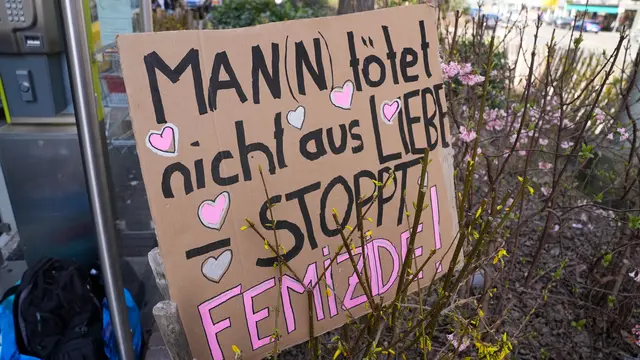 MAN(N) tötet
nicht aus LIEBE
- STOPPT
FEMIZIDE!